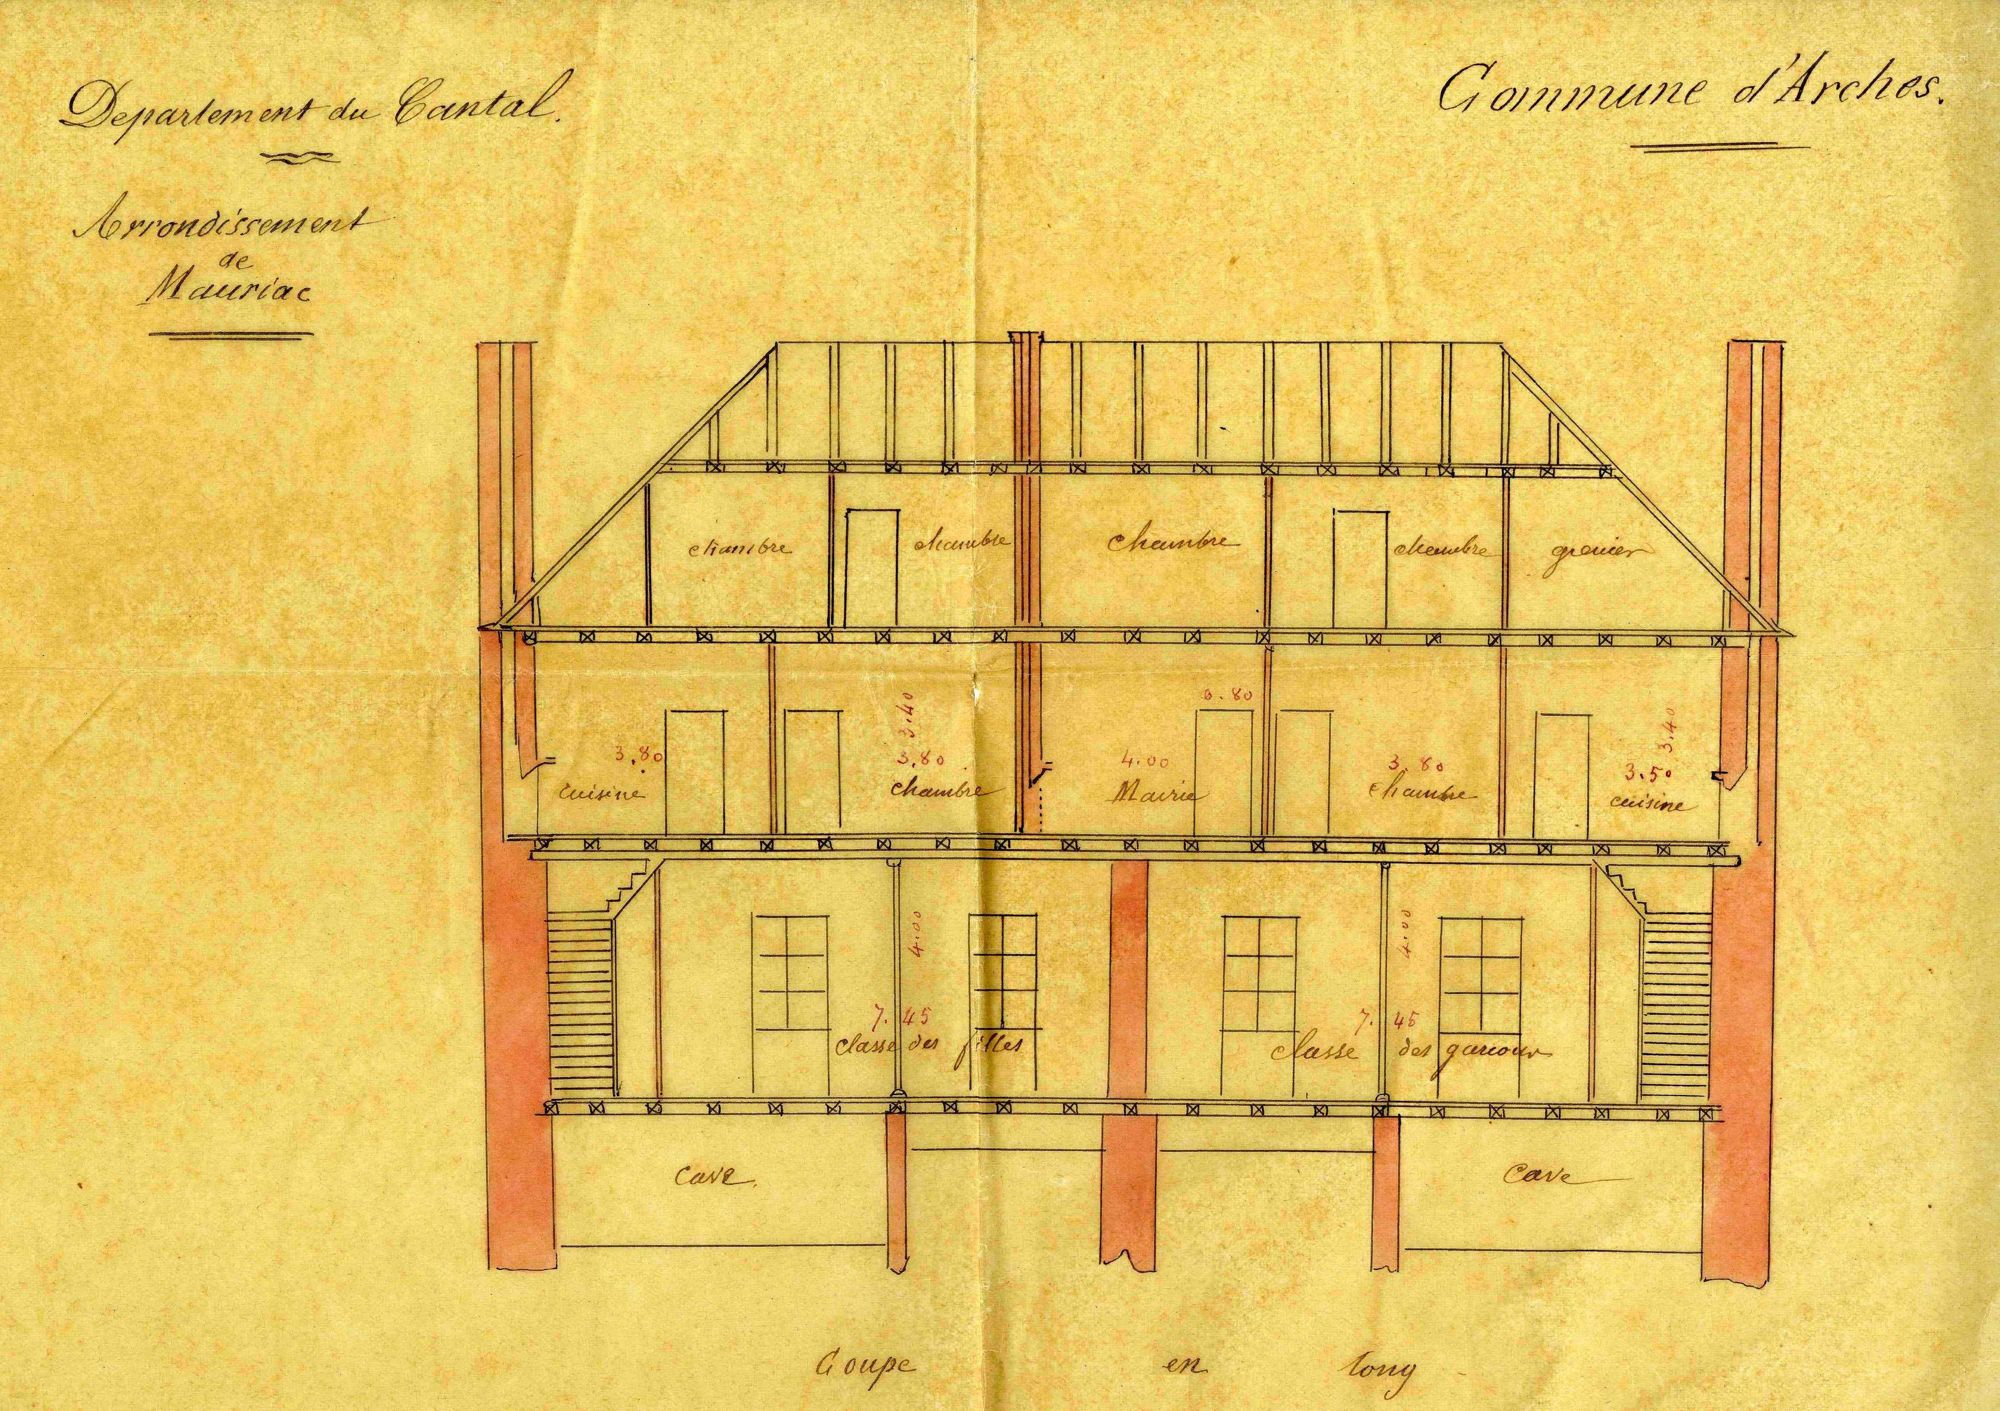 Departement du Cantal.
Commune d'Arches.
Arrondissement
de
Mauriac
chambre
chambre
chambre
chambre
grenier
3.80
cuisine
3.40
3.80
chambre
4.00
Mairie
0.80
3.80
chambre
3.40
3.50
cuisine
4.00
7.45
classe des filles
4.00
7.45
classe des garcons
cave.
cave
Coupe en long